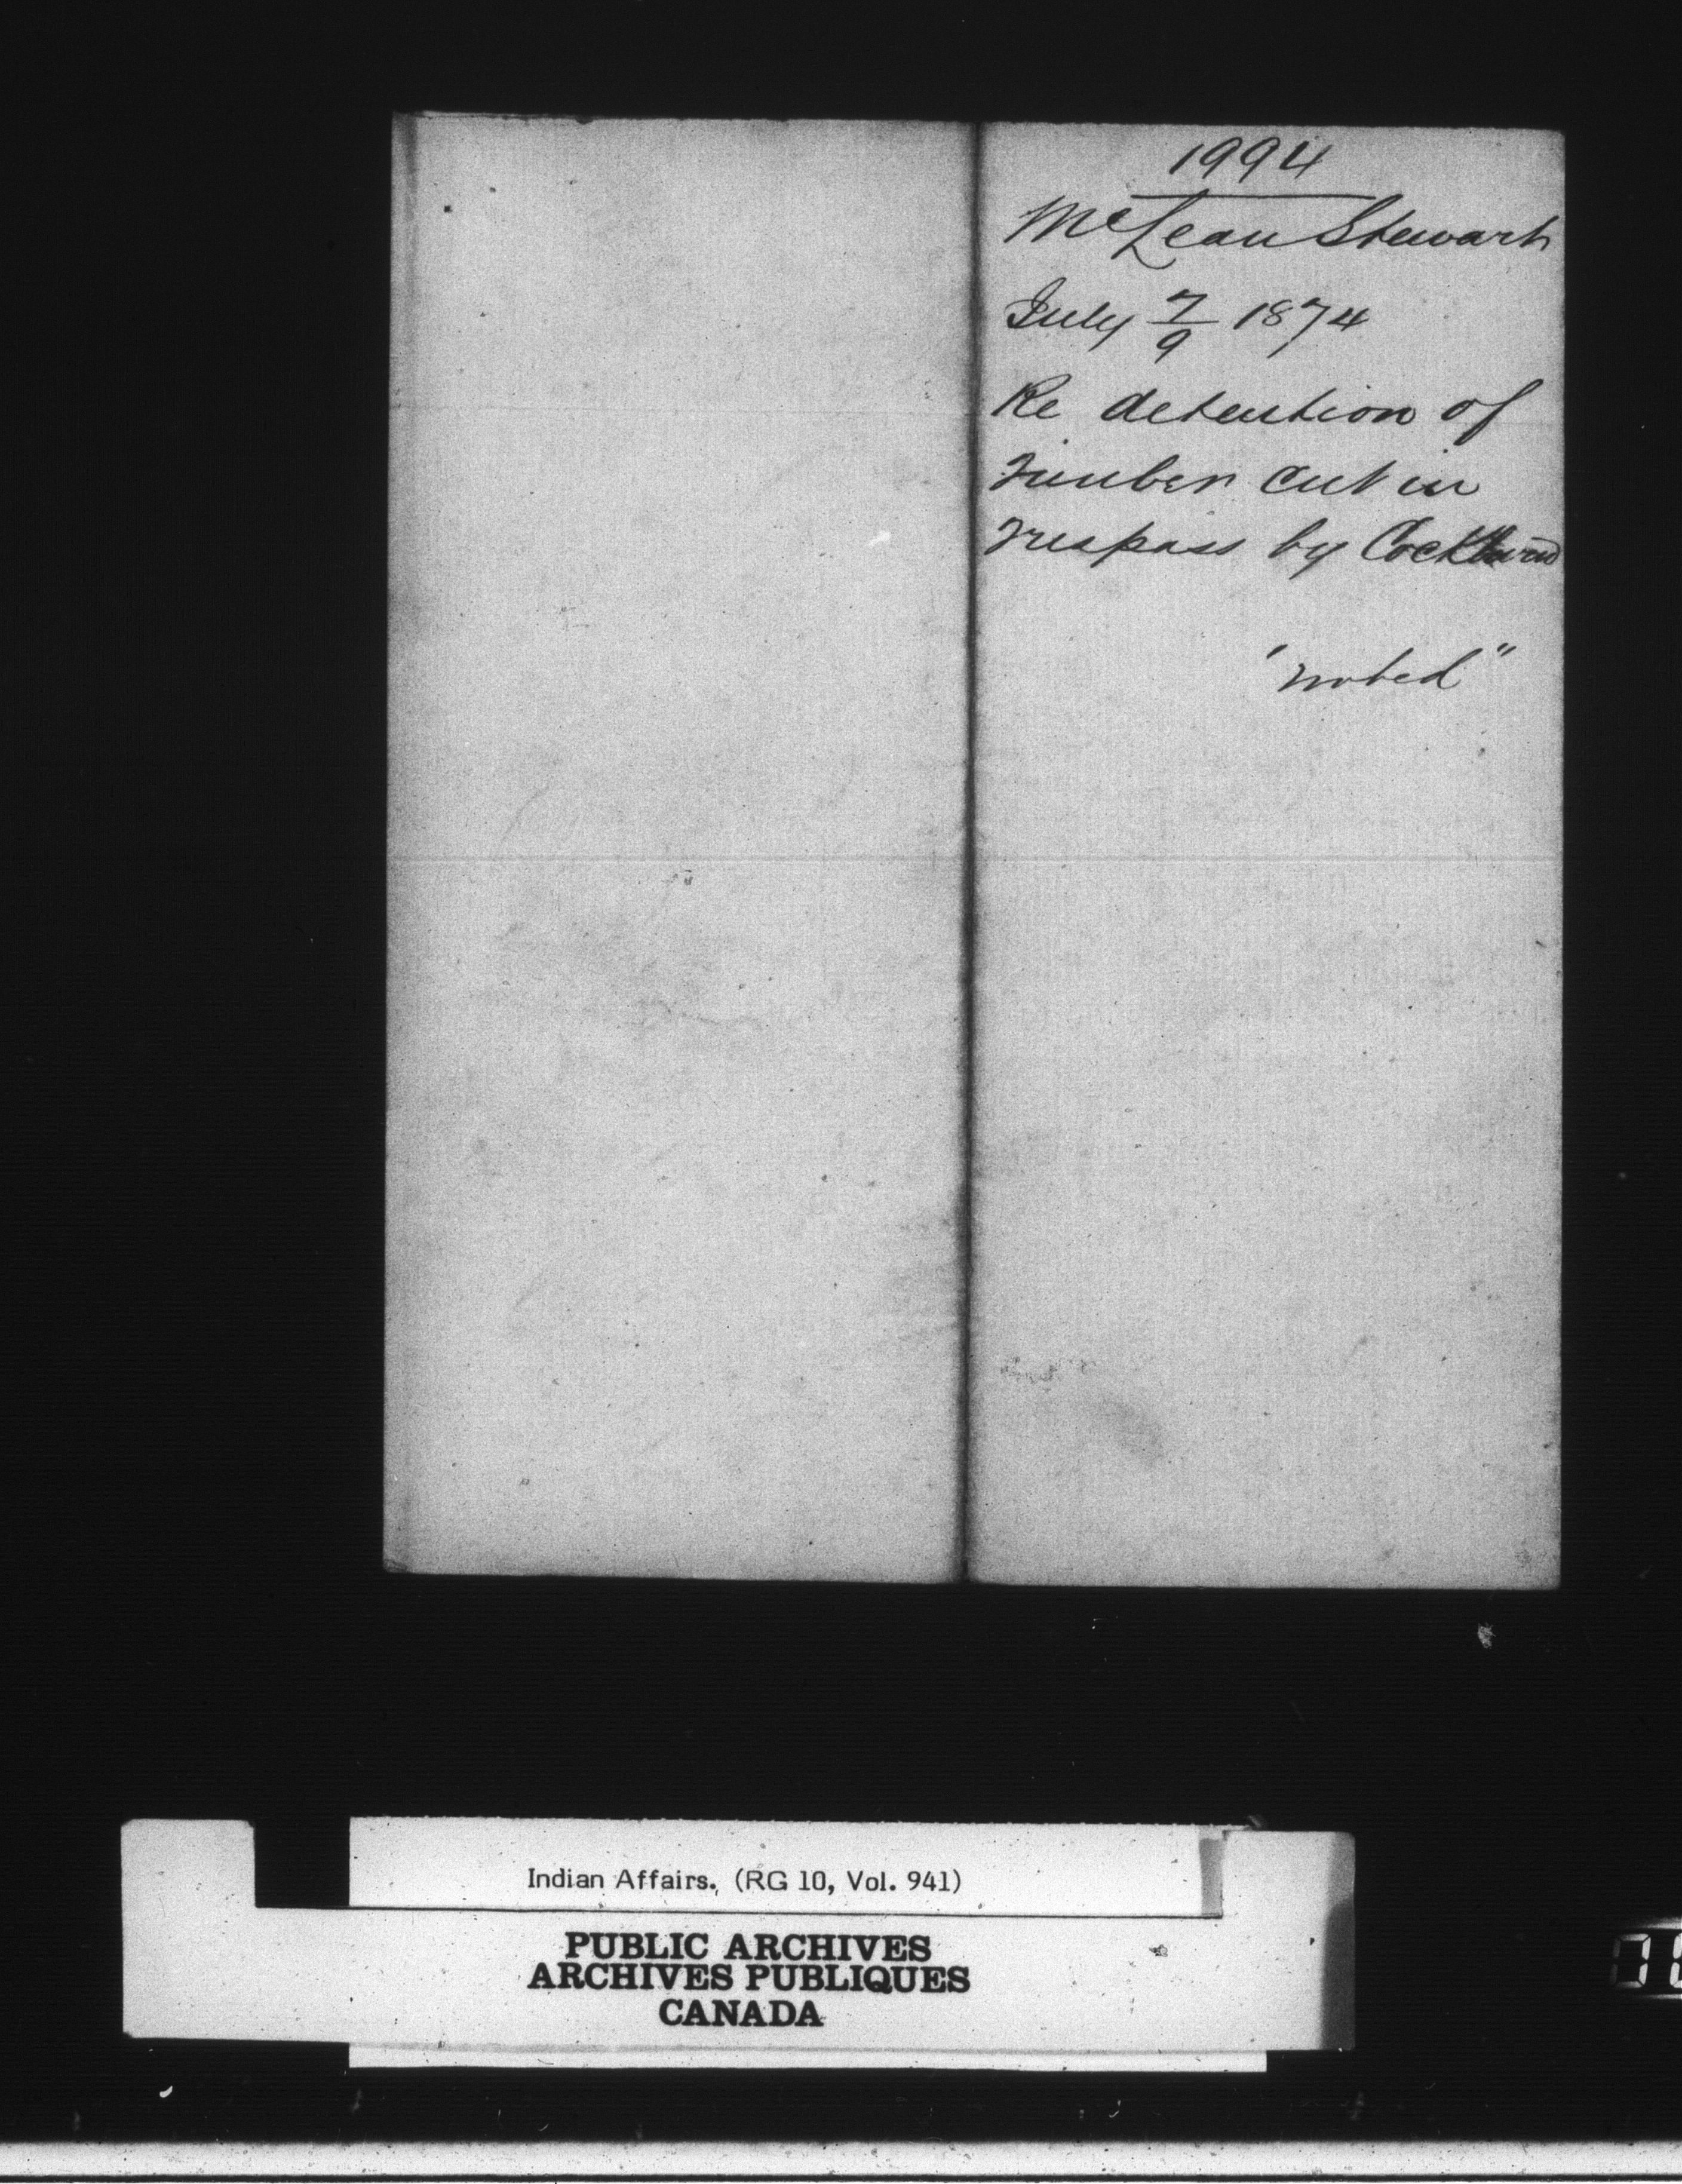 1994
McLean Stewart
July 7/9 1874
Re detention of
Timber cut in
Trespass by
"noted"
Indian Affairs. (RG 10, Vol. 941)
PUBLIC ARCHIVES
ARCHIVES PUBLIQUES
CANADA